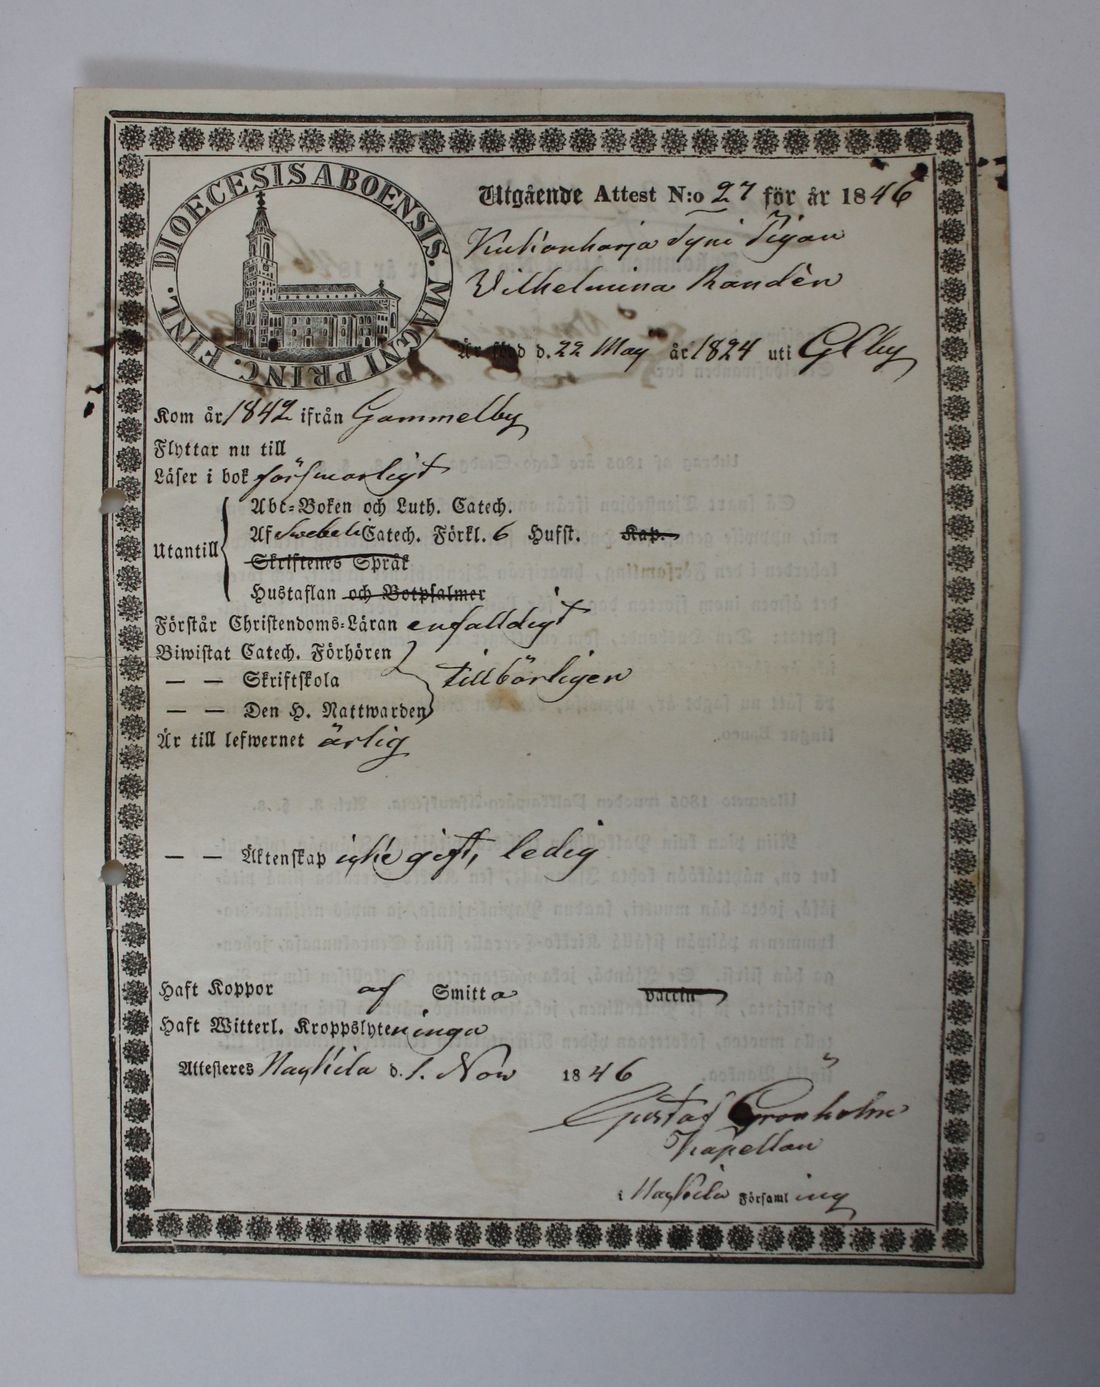 DIOECESIS ABOENSIS. MAGNI PRINC. FINL.
Utgående Attest N:o 27 för år 1846
Wilhelmina Randèn
Är född d. 22 May år 1824 uti
Kom år 1842 ifrån Gammelby
Flyttar nu till
Läser i bok försvarligt
Utantill
Abt-Boken och Luth. Catech.
Af Svebeli Catech. Förkl. 6 Hufst. Kap.
Skriftenes Språk
Hustaflan och Botpsalmer
Förstår Christendoms-Läran enfalldigt
Biwistat Catech. Förhören
— — Skriftskola tillbörligen
— — Den H. Nattwarden
Är till lefwernet ärlig
— — Äktenskap icke gift, ledig
Haft Koppor af Smitta vaccin
Haft Witterl. Kroppslyten inga
Attesteres d. 1. Nov 1846
Gustaf Gronholm
Kapellan
i Församling